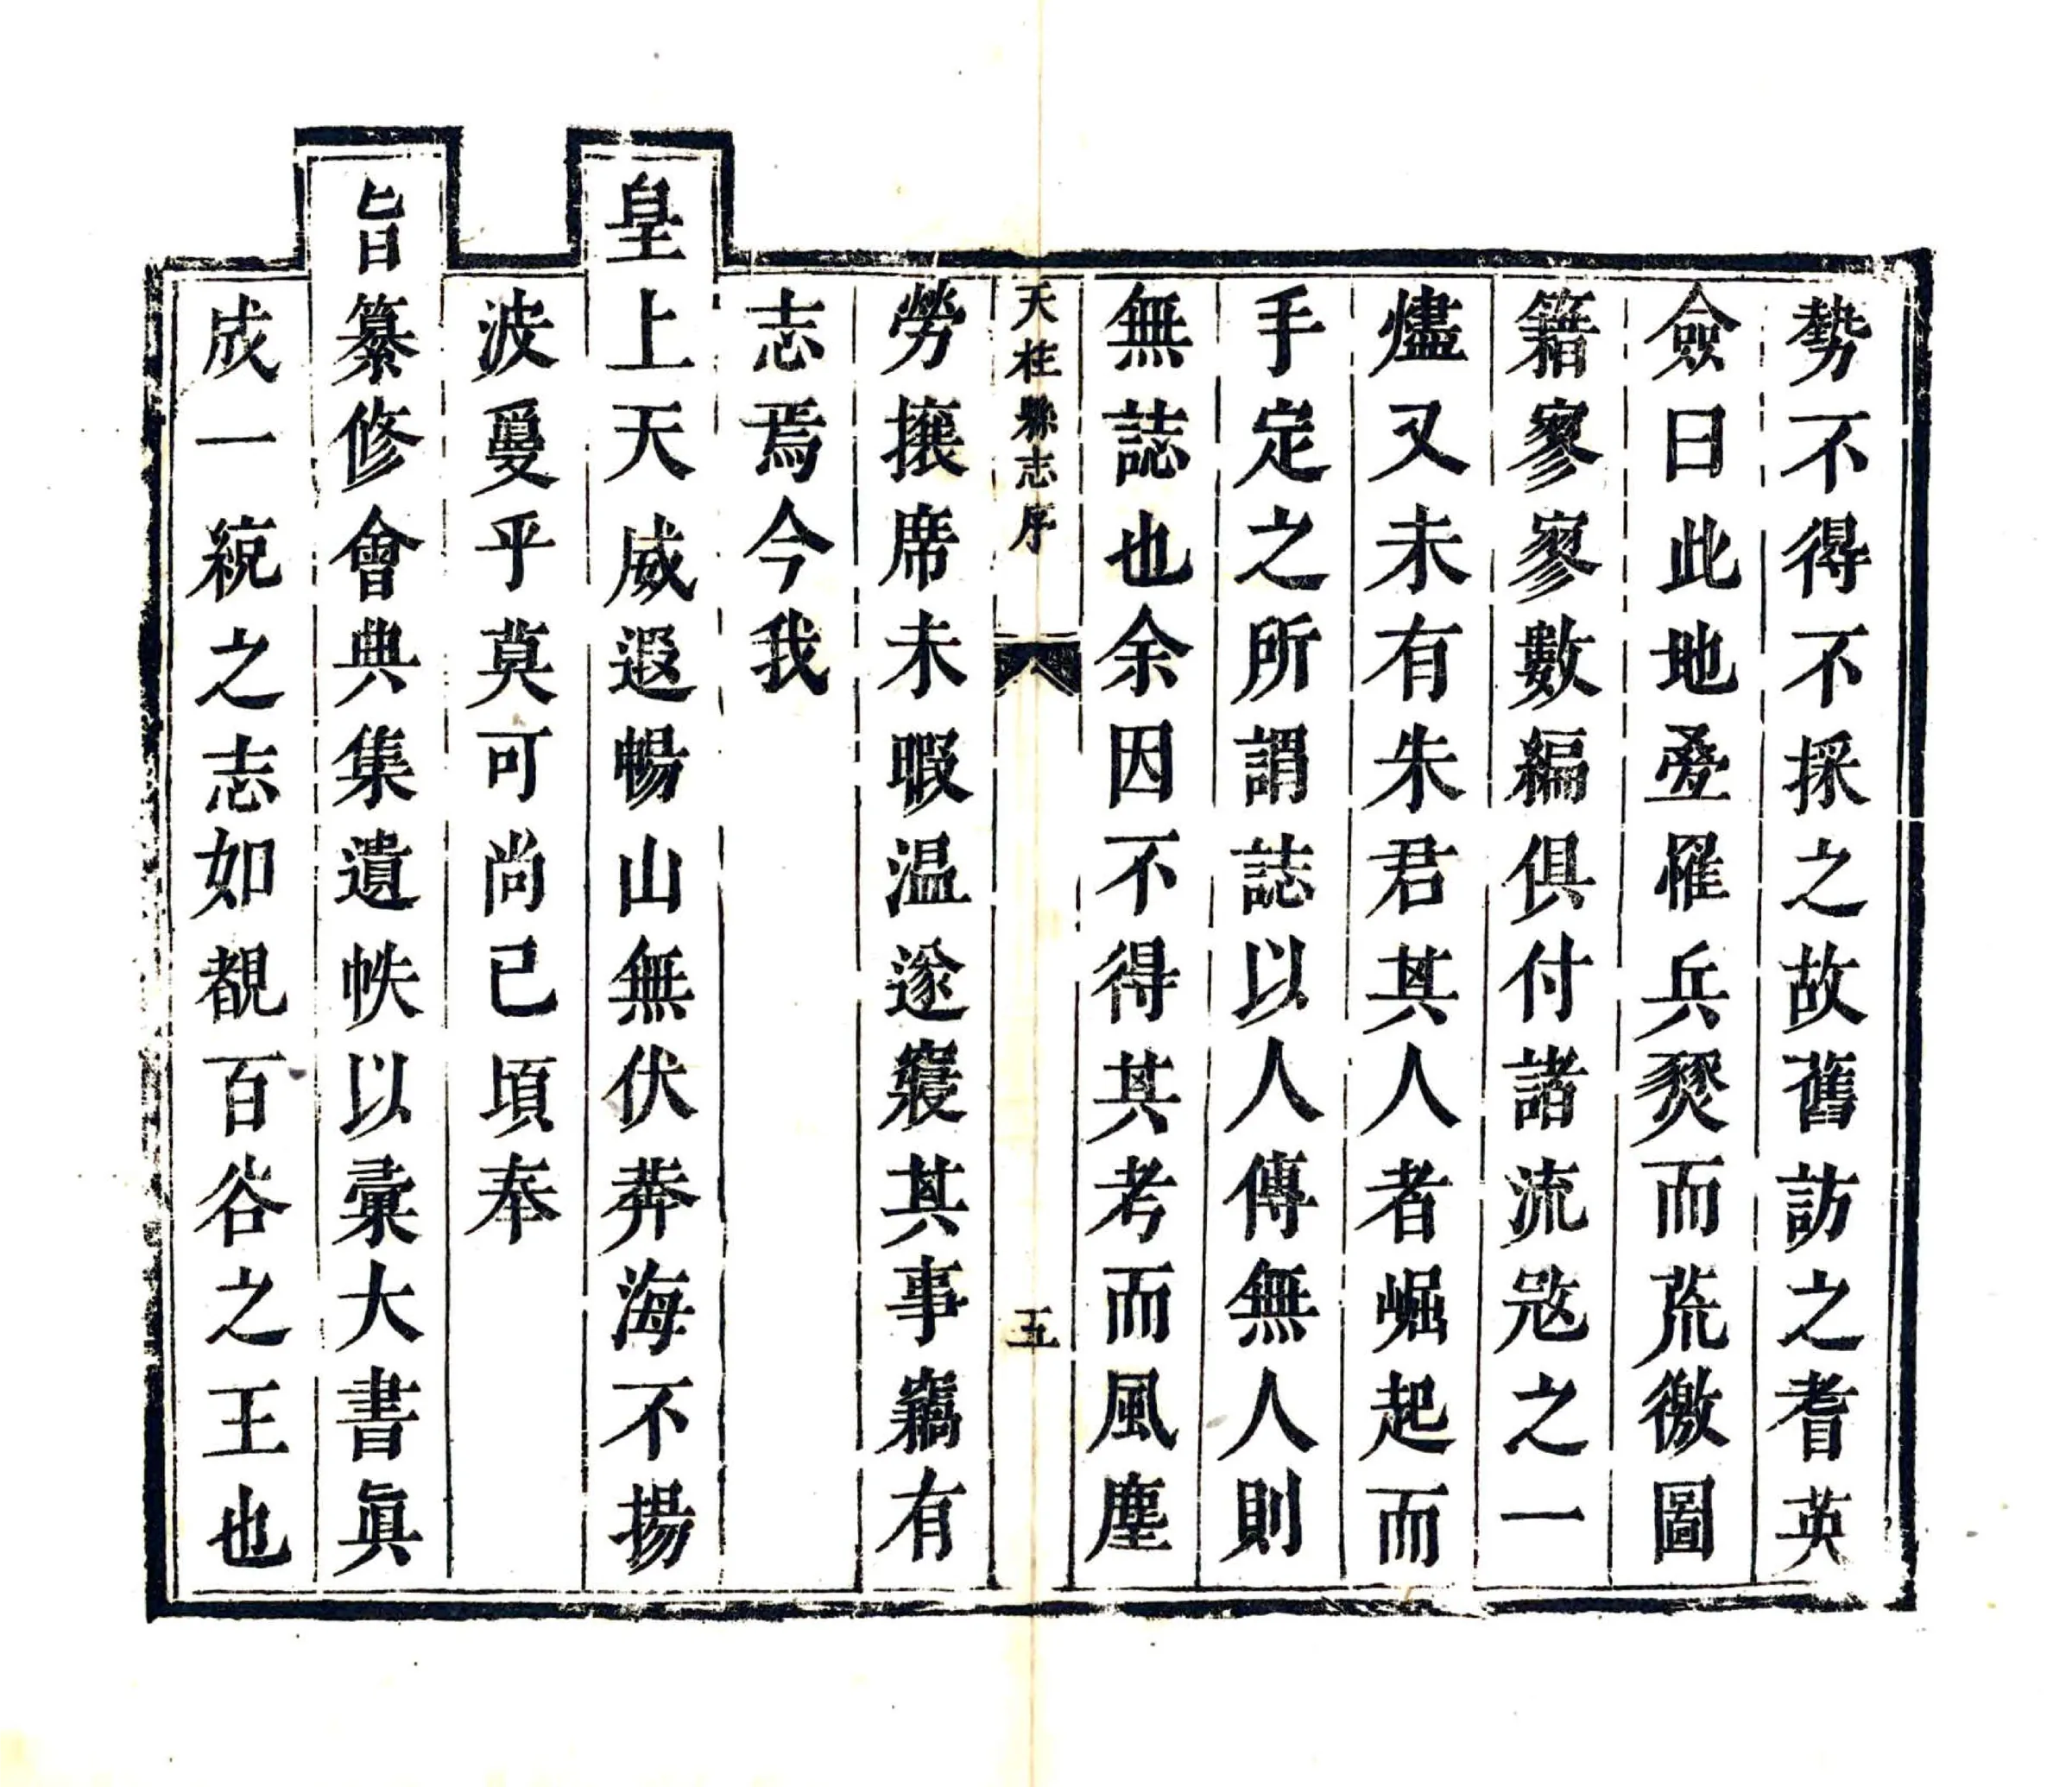 勢不得不採之故舊訪之耆英
僉曰此地疊罹兵燹而荒徼圖
籍寥寥數編俱付諸流寇之一
燼又未有朱君其人者崛起而
手定之所謂誌以人傳無人則
無誌也余因不得其考而風塵
天柱縣志序
五
勞攘席未暇温遂寢其事竊有
志焉今我
皇上天威遐暢山無伏莽海不揚
波戛乎莫可尚已頃奉
旨纂修會典集遺帙以彙大書眞
成一統之志如覩百谷之王也